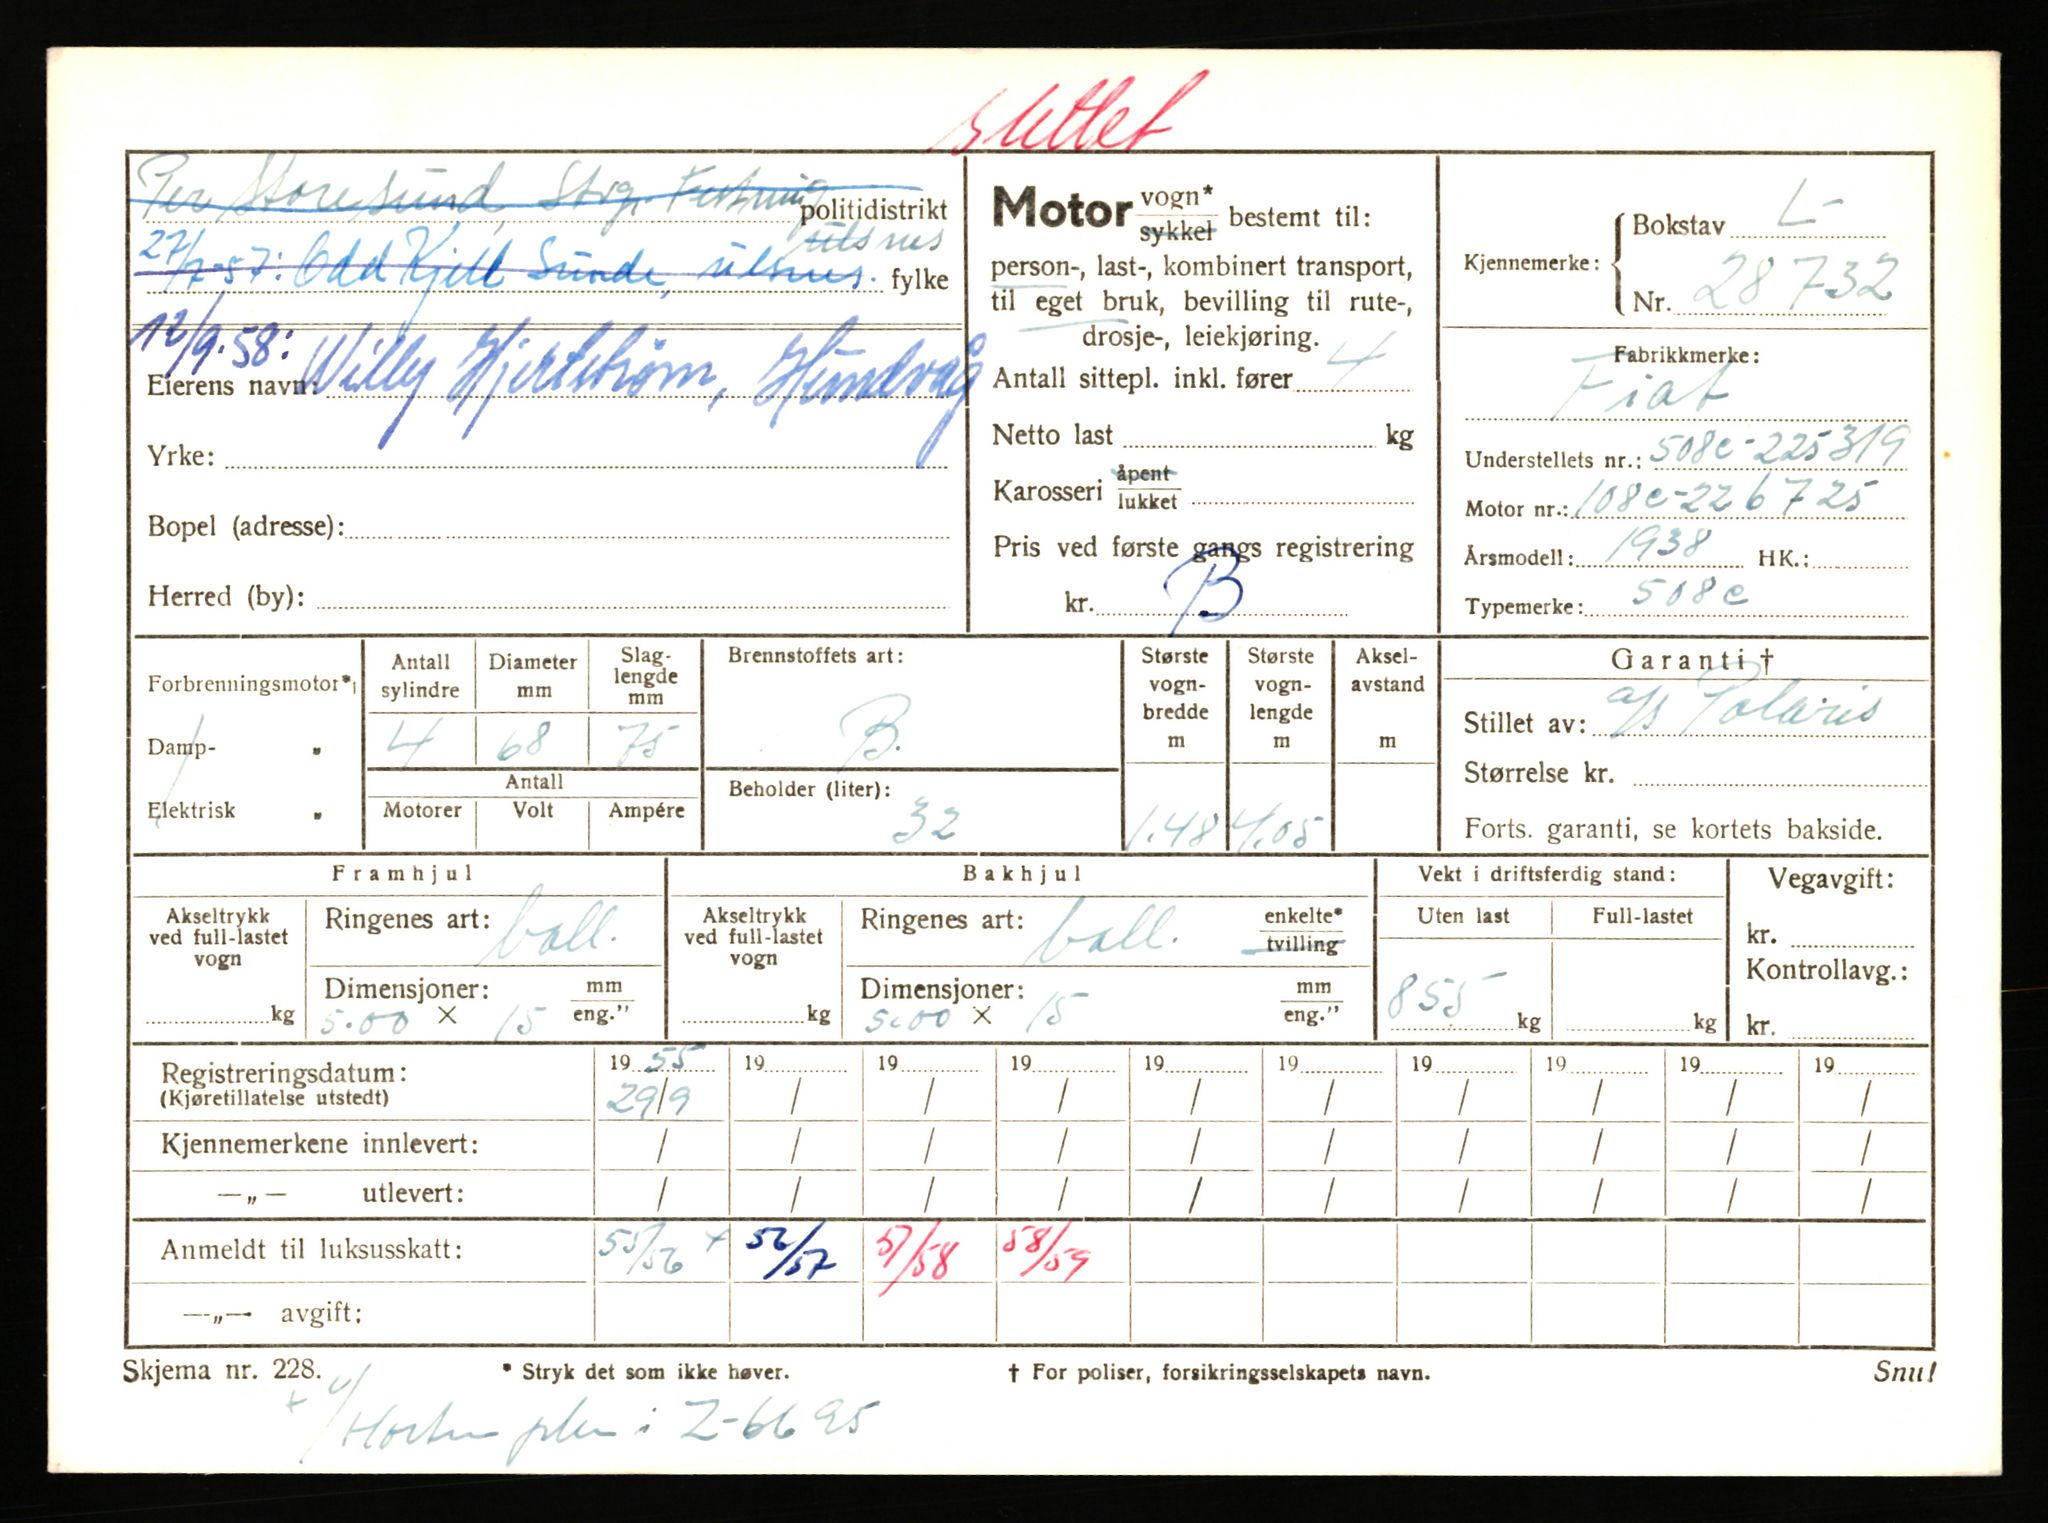 slettet
Per Storesund, Storg.
politidistrikt
ulsnes
27/7-57: Odd Kjell Sunde, ulsnes.
fylke
12/9-58: Willy Hjertstrøm, Hundvåg
Eierens navn:
Yrke:
Bopel (adresse):
Herred (by):
Motor vogn* sykkel bestemt til:
person-, last-, kombinert transport,
til eget bruk, bevilling til rute-,
drosje-, leiekjøring.
Antall sittepl. inkl. fører 4
Netto last kg
Karosseri åpent lukket
Pris ved første gangs registrering
kr. B
Kjennemerke: Bokstav L-
Nr. 28732
Fabrikkmerke:
Fiat
Understellets nr.: 508c-225319
Motor nr.: 108c-226725
Årsmodell: 1938 HK.:
Typemerke: 508c
Forbrenningsmotor*
Damp- "
Elektrisk "
Antall sylindre
4
Diameter mm
68
Slag-lengde mm
75
Antall
Motorer Volt Ampére
Brennstoffets art:
B.
Beholder (liter):
32
Største vogn-bredde m
1.48
Største vogn-lengde m
4.05
Aksel-avstand m
Garanti †
Stillet av: a/s Polaris
Størrelse kr.
Forts. garanti, se kortets bakside.
Framhjul
Akseltrykk ved full-lastet vogn
kg
Ringenes art: ball.
Dimensjoner: mm eng."
5.00 × 15
Bakhjul
Akseltrykk ved full-lastet vogn
kg
Ringenes art: ball. enkelte* tvilling
Dimensjoner: mm eng."
5.00 × 15
Vekt i driftsferdig stand:
Uten last Full-lastet
855 kg kg
Vegavgift:
kr.
Kontrollavg.:
kr.
Registreringsdatum: 19 55 19 19 19 19 19 19 19 19 19
(Kjøretillatelse utstedt) 29/9 / / / / / / / / /
Kjennemerkene innlevert: / / / / / / / / / /
—„— utlevert: / / / / / / / / / /
Anmeldt til luksusskatt: 55/56 + 56/57 57/58 58/59
—„— avgift:
Skjema nr. 228. * Stryk det som ikke høver. † For poliser, forsikringsselskapets navn. Snu!
+ i Z-6695